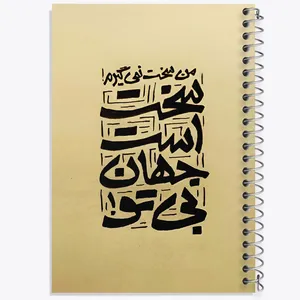 من سخت نمی گیرم
سخت
است
جهان
بی تو!